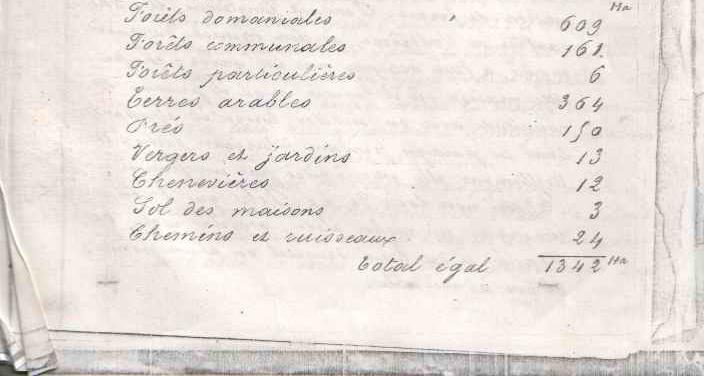 Forêts domaniales 609 Ha
Forêts communales 161.
Forêts particulières 6
Terres arables 364
Prés 150
Vergers et jardins 13
Chenevières 12
Sol des maisons 3
Chemins et ruisseaux 24
Total égal 1342 Ha